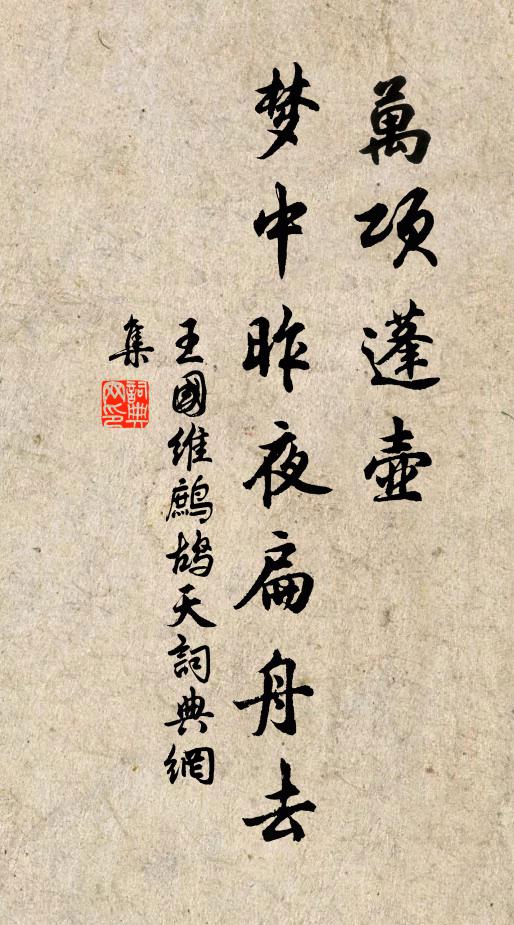 萬项蓬壺
梦中昨夜扁舟去
王國維鷓鴣天詞典網
集
詞典
网印